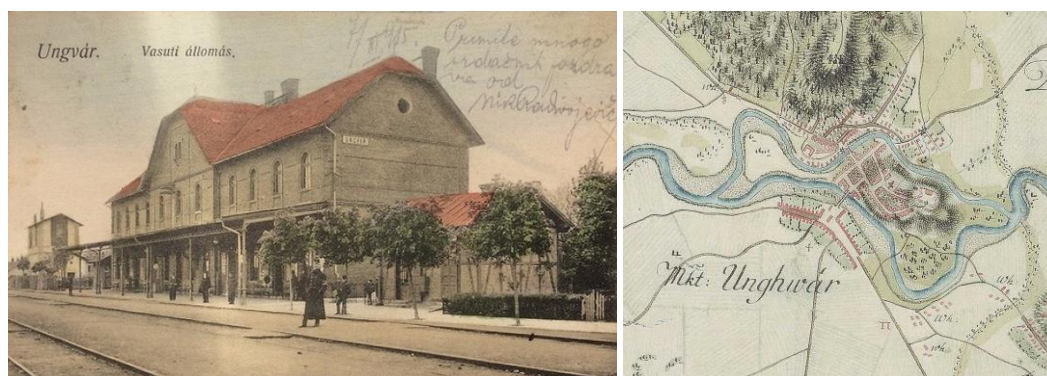 Ungvár. Vasuti állomás.
Primite mnogo
srdačnih pozdra
va od
UNGVÁR
Mkt: Unghwár
Wh.
Wh.
Wh.